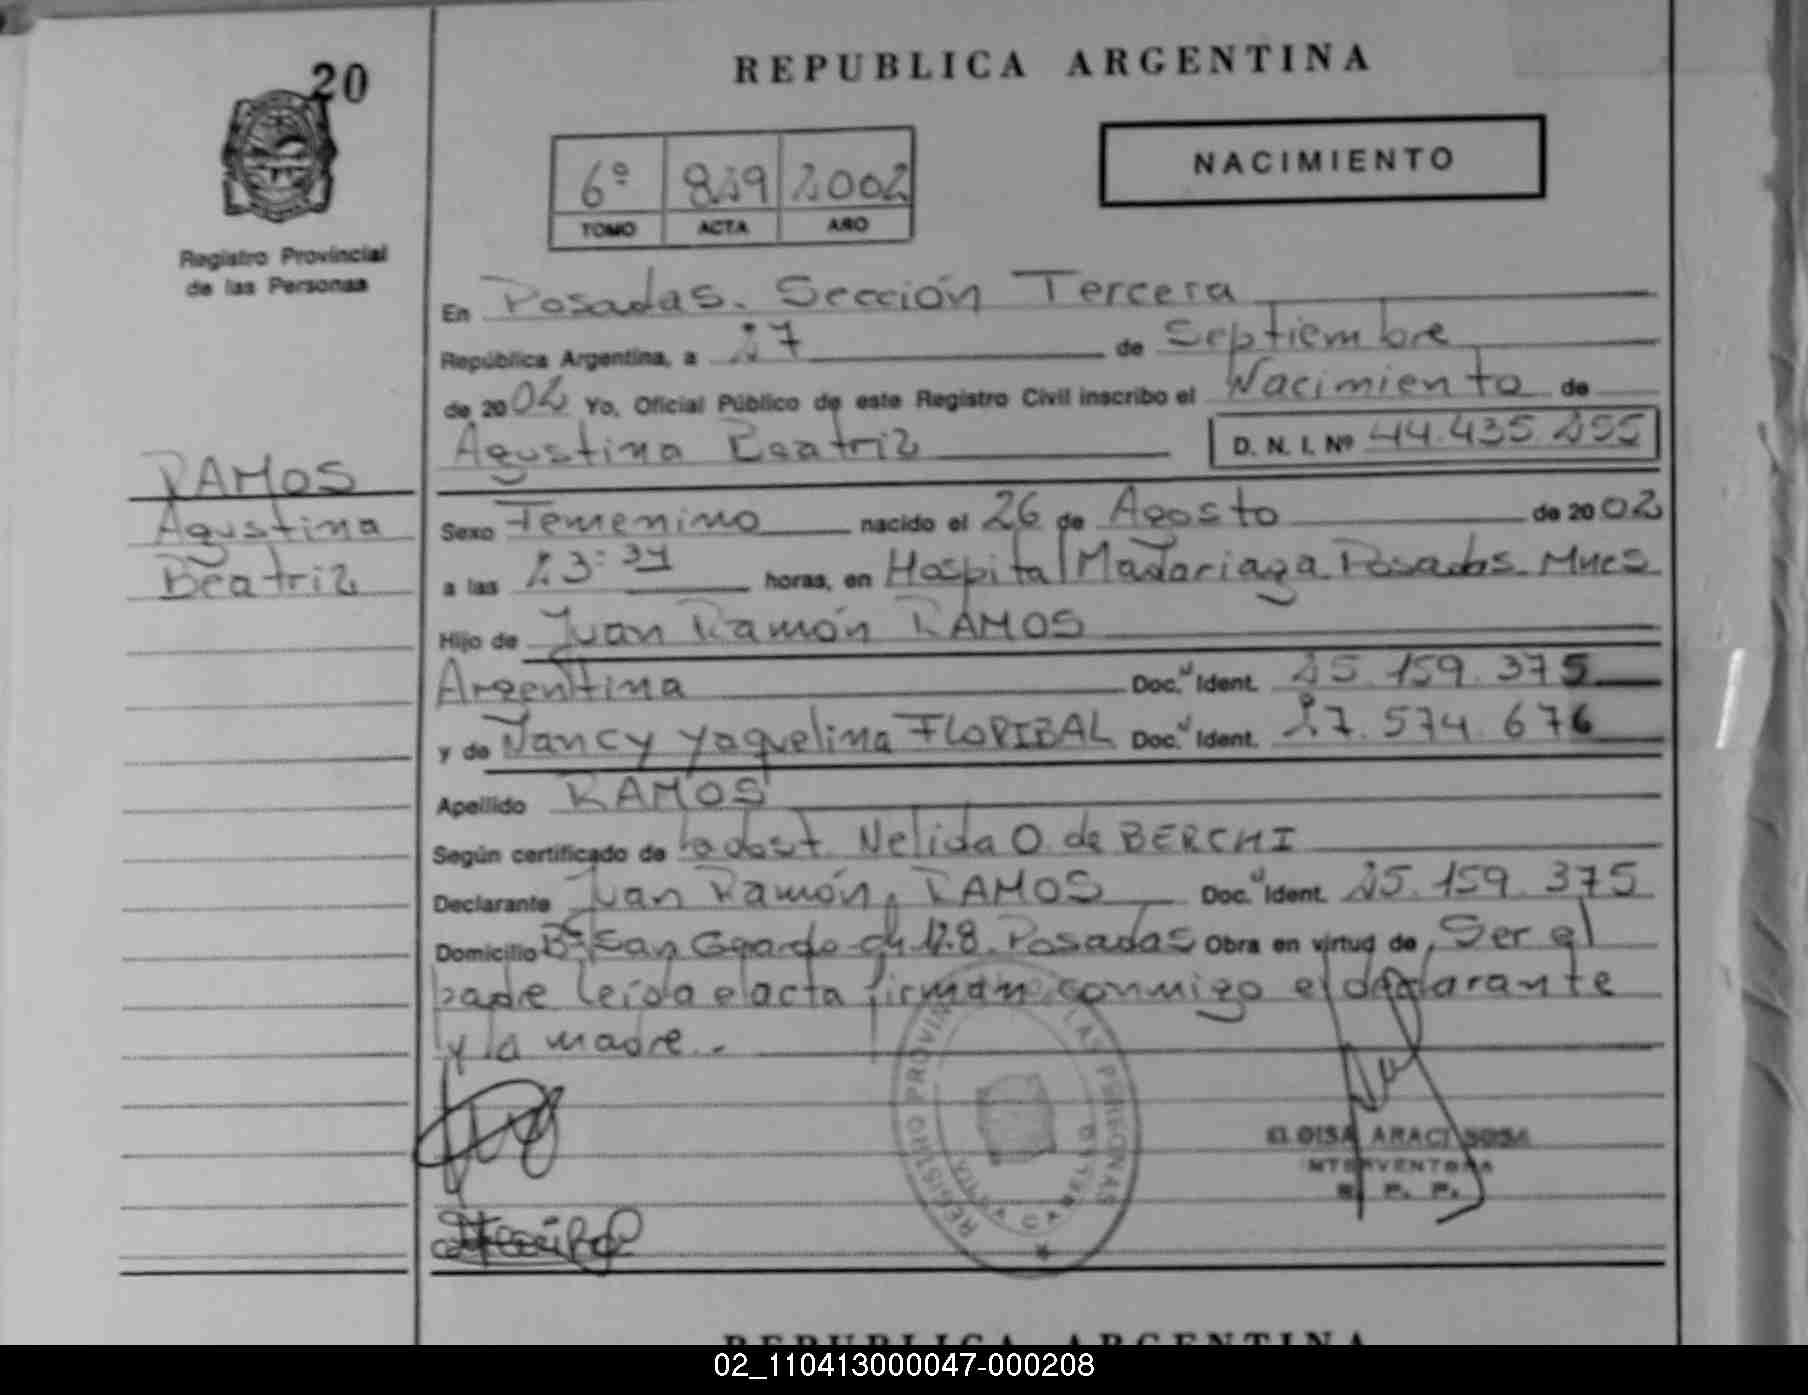 20
REPUBLICA ARGENTINA
6º 829 2002
TOMO ACTA AÑO
NACIMIENTO
Registro Provincial
de las Personas
En Posadas. Sección Tercera
República Argentina, a 27 de Septiembre
de 2002 Yo, Oficial Público de este Registro Civil inscribo el Nacimiento de
Agustina Beatriz D. N. I. Nº 44.435.255
RAMOS
Agustina
Beatriz
Sexo Femenino nacido el 26 de Agosto de 2002
a las 23:34 horas, en Hospital Madariaga Posadas. Mnes
Hijo de Juan Ramón RAMOS
Argentina Doc. Ident. 25.159.375
y de Nancy Yaquelina FLORIBAL Doc. Ident. 27.574.676
Apellido RAMOS
Según certificado de la obst. Nelida O. de BERCHI
Declarante Juan Ramón, RAMOS Doc. Ident. 25.159.375
Domicilio Bº San Gerardo Posadas Obra en virtud de, Ser el
padre leída el acta firman conmigo el declarante
y la madre..
REGISTRO PROVINCIAL LAS PERSONAS
ELOISA ARACI SOSA
INTERVENTORA
R. P. P.
REPUBLICA ARGENTINA
02_110413000047-000208